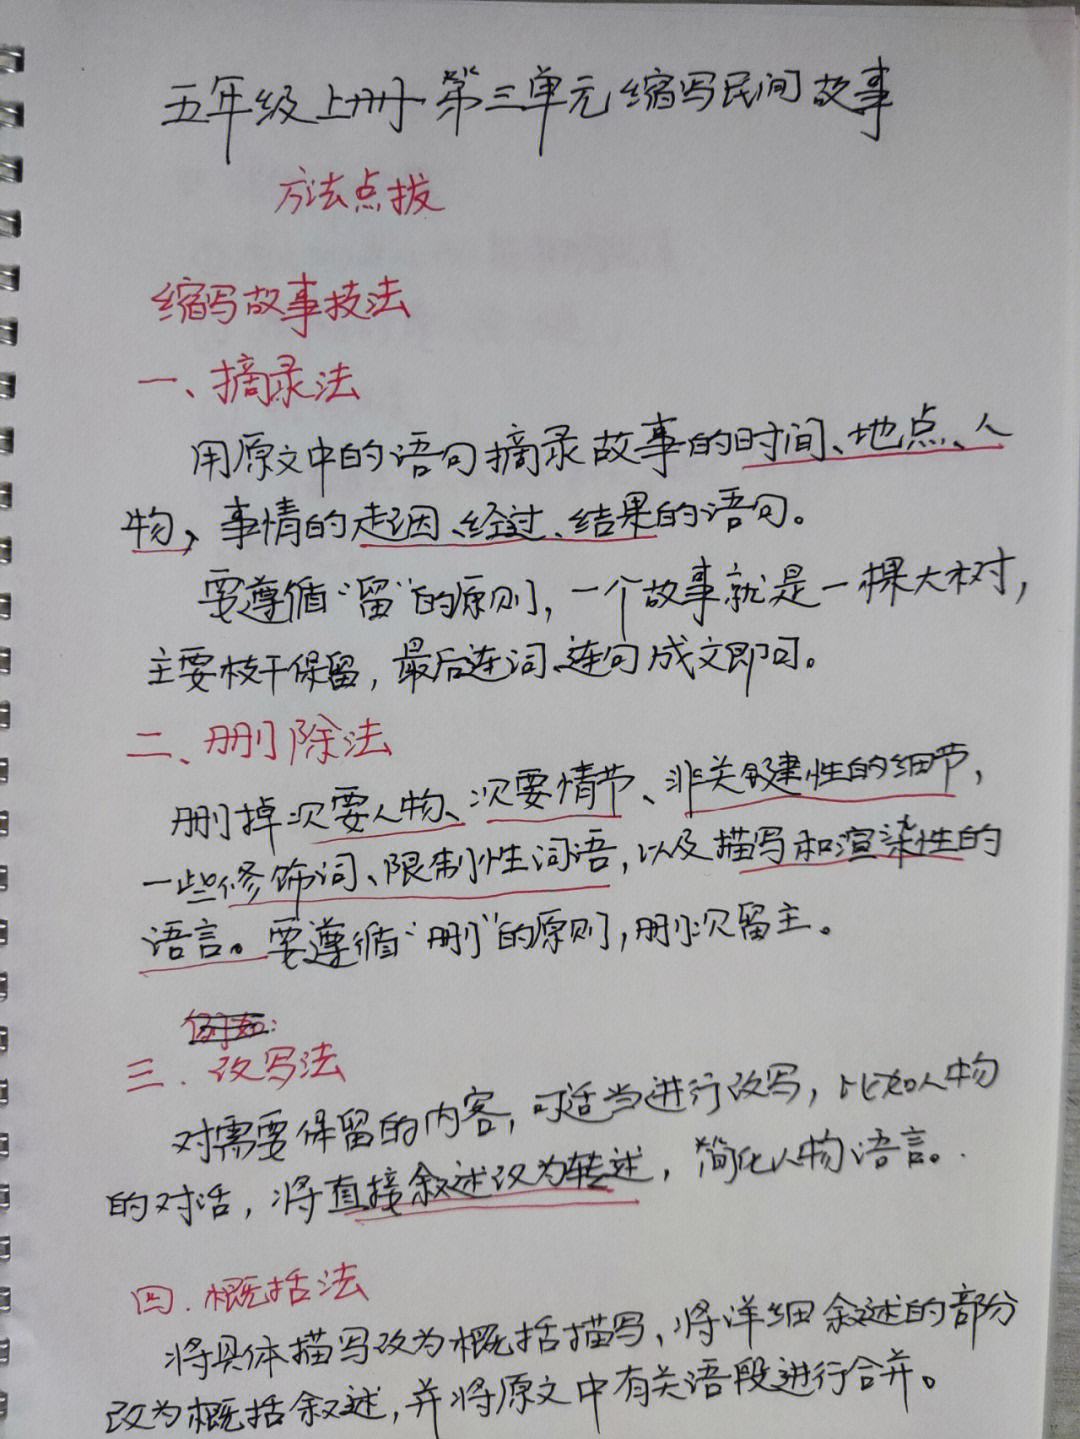 五年级上册第三单元缩写民间故事
方法点拔
缩写故事技法
一、摘录法
用原文中的语句摘录故事的时间、地点、人
物，事情的起因、经过、结果的语句。
要遵循“留”的原则，一个故事就是一棵大树，
主要枝干保留，最后连词、连句成文即可。
二、删除法
删掉次要人物、次要情节、非关键性的细节，
一些修饰词、限制性词语，以及描写和渲染性的
语言。要遵循“删”的原则，删次留主。
例如：
三.改写法
对需要保留的内容，可适当进行改写，比如人物
的对话，将直接叙述改为转述，简化人物语言。
四.概括法
将具体描写改为概括描写，将详细叙述的部分
改为概括叙述，并将原文中有关语段进行合并。